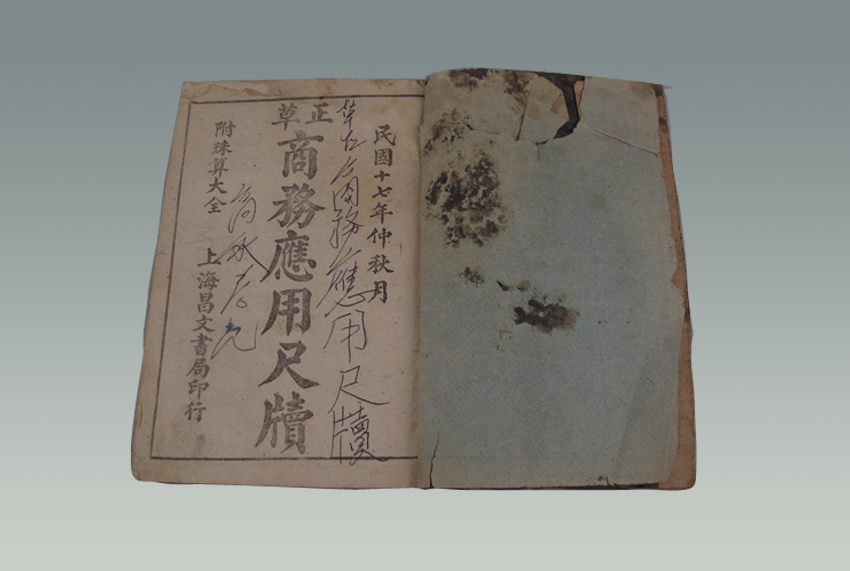 民國十七年仲秋月
草正商務應用尺牘
正草
商務應用尺牘
附珠算大全
上海昌文書局印行